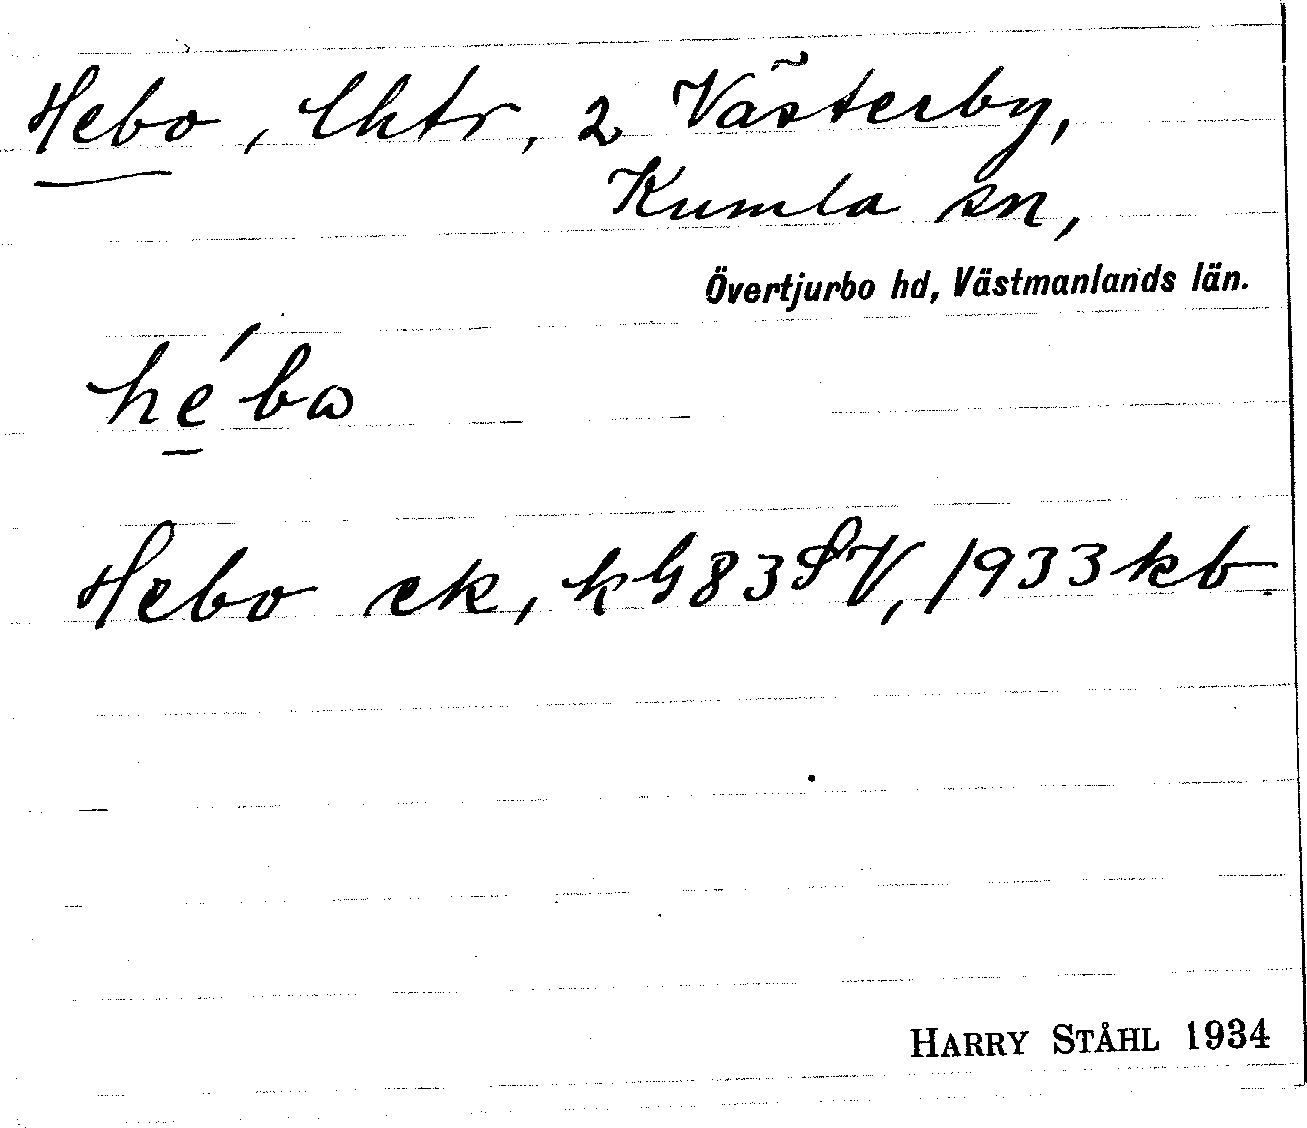 Hebo, lhtr, 2 Västerby,
Kumla sn,
Övertjurbo hd, Västmanlands län.
he´bω
Hebo ek, kG83SV, 1933 kb.
HARRY STÅHL 1934